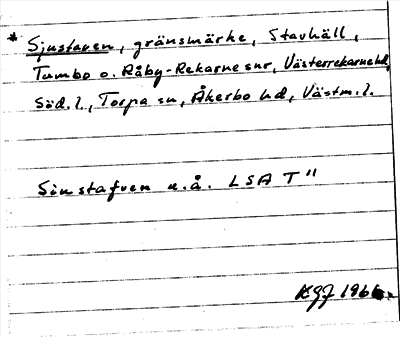 * Sjustaven, gränsmärke, Stavhäll,
Tumbo o. Råby-Rekarne snr, Västerrekarne hd,
Söd. l., Torpa sn, Åkerbo hd, Västm. l.
Siustafven u.å. LSA T 11
KGJ 1966.